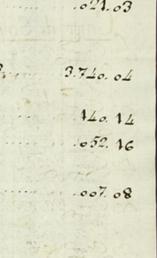 .021.03
3.740.04
140.14
.052.16
.007.08